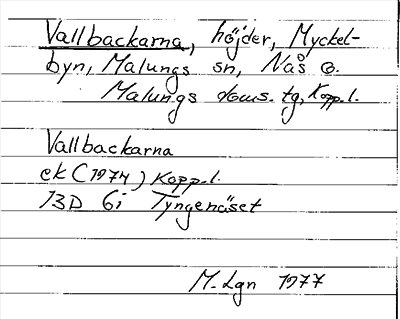 Vallbackarna, höjder, Myckel-
byn, Malungs sn, Nås o.
Malungs doms. tg, Kopp.l.
Vallbackarna
ek (1974) Kopp.l.
13D 6i Tyngenäset
M. Lgn 1977